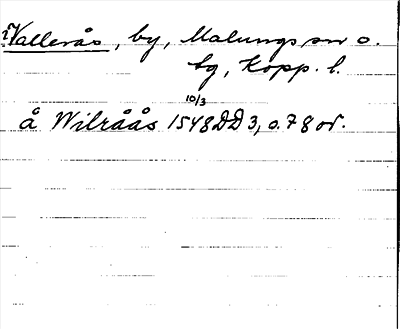 ?Vallerås, by, Malungs sn o.
tg, Kopp. l.
10/3
å Wilråås 1548 DD 3, o. 78 or.